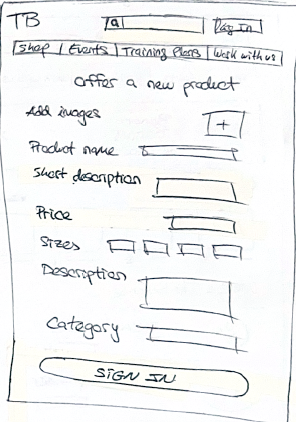 TB Q Log In
Shop | Events | Training Plans | Work with us
Offer a new product
Add images +
Product name
Short description
Price
Sizes
Description
Category
SIGN IN